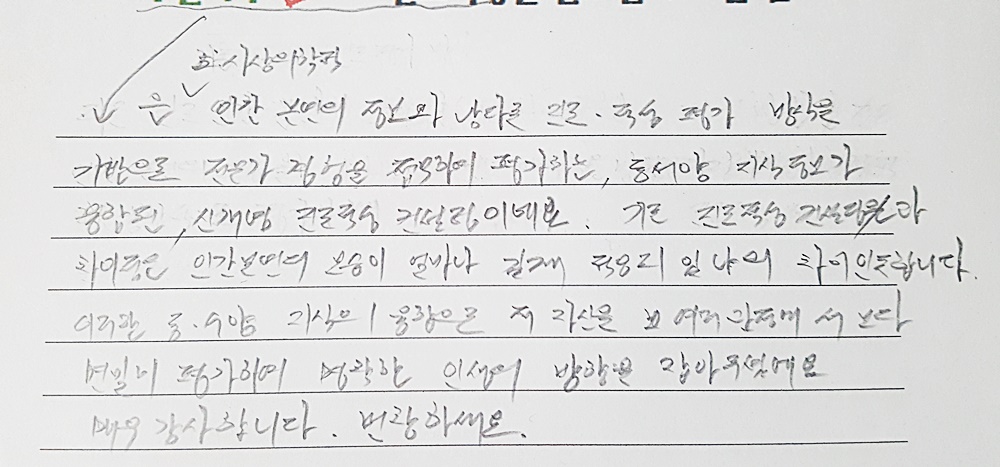 사상의학적
은 인간 본연의 정보와 남다른 진로·특성 평가 방식을
기반으로 전문가 경험을 접목하여 평가하는, 동서양 지식정보가
융합된, 신개념 진로특성 컨설팅이네요. 기존 진로특성 컨설팅과
차이점은 인간본연의 본능이 얼마나 깊게 적용되었냐의 차이인듯합니다.
이러한 동·서양 지식의 융합으로 저 자신을 여러 관점에서 보다
면밀히 평가하여 명확한 인생의 방향을 잡아주셨네요
매우 감사합니다. 번창하세요.